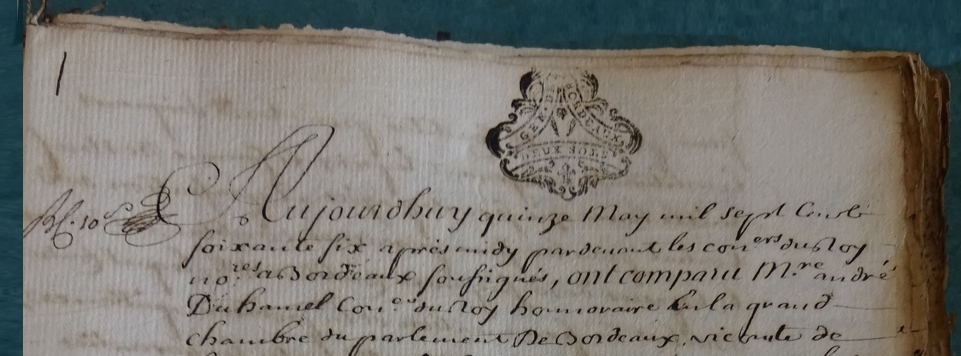 1
GEN. DE BORDEAUX
DEUX SOLS
Aujourdhuy quinze May mil sept Cents
soixante six apres midy pardevant les con.ers du Roy
no.res a Bordeaux soussignés, ont comparu M.re andré
Duhamel Con.er du Roy honoraire En la grand
chambre du parlement De Bordeaux, vicomte de